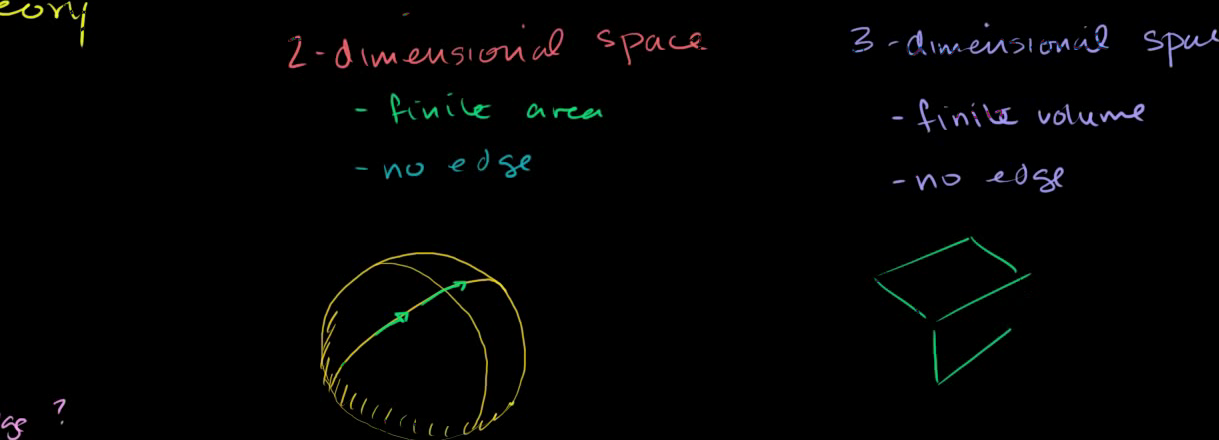 eory
2-dimensional space
- finite area
- no edge
3-dimensional spac
- finite volume
- no edge
?